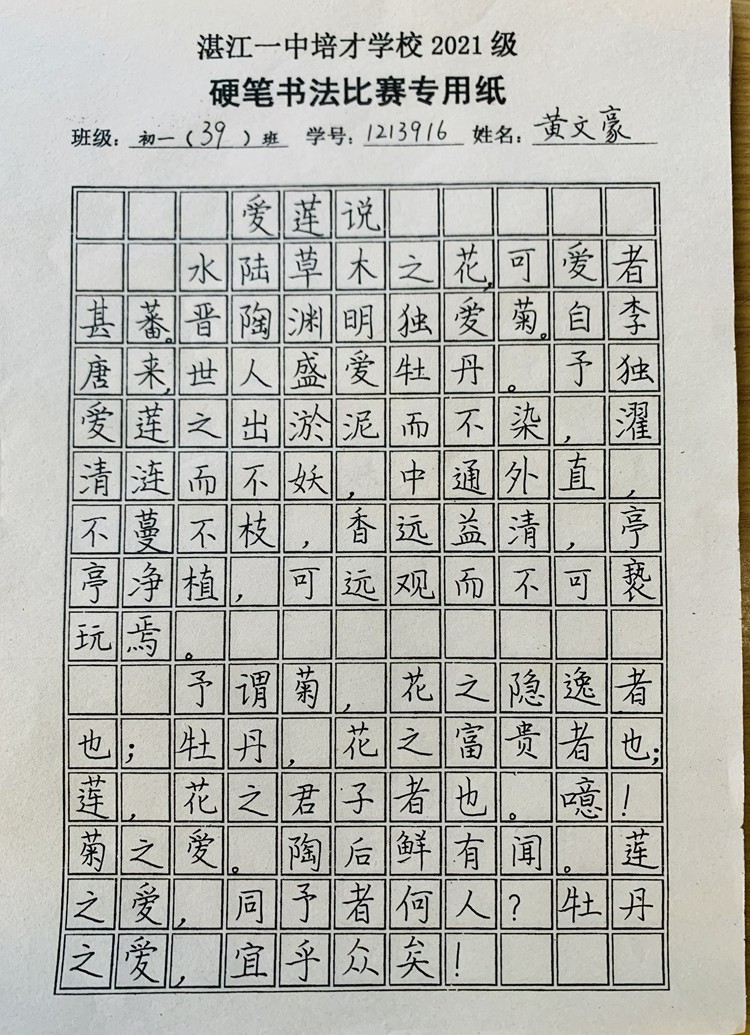 湛江一中培才学校2021级
硬笔书法比赛专用纸
班级：初一（39）班 学号：1213916 姓名：黄文豪
爱莲说
水陆草木之花，可爱者
甚蕃。晋陶渊明独爱菊。自李
唐来，世人盛爱牡丹。予独
爱莲之出淤泥而不染，濯
清涟而不妖，中通外直，
不蔓不枝，香远益清，亭
亭净植，可远观而不可亵
玩焉。
予谓菊，花之隐逸者
也；牡丹，花之富贵者也；
莲，花之君子者也。噫！
菊之爱。陶后鲜有闻。莲
之爱，同予者何人？牡丹
之爱，宜乎众矣！